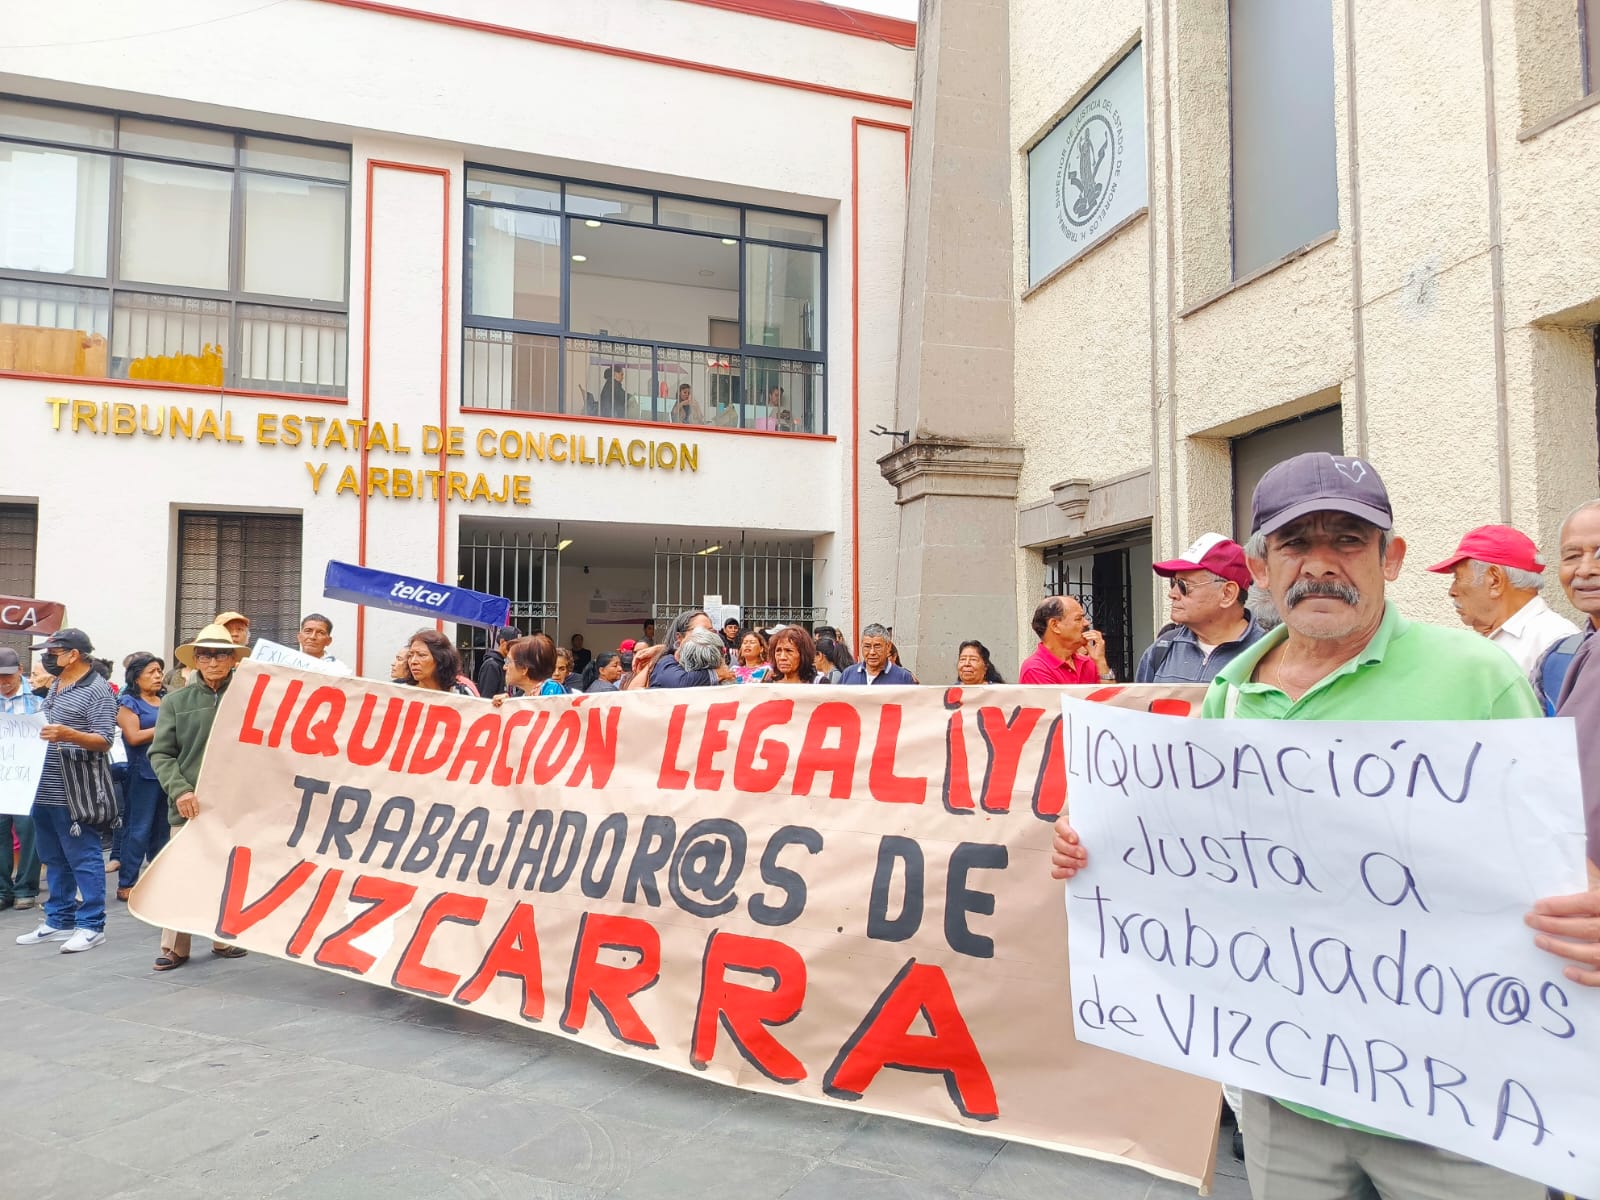 TRIBUNAL ESTATAL DE CONCILIACION
Y ARBITRAJE
H. TRIBUNAL SUPERIOR DE JUSTICIA DEL ESTADO DE MORELOS
telcel
CA
EXIGIM
LIQUIDACIÓN LEGAL ¡YA
TRABAJADOR@S DE
VIZCARRA
LIQUIDACIÓN
Justa a
trabajador@s
de VIZCARRA.